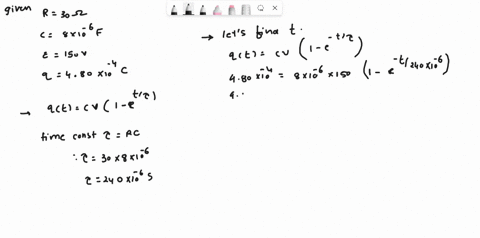 given R = 30 Ω
C = 8 × 10⁻⁶ F
ε = 150 V
q = 4.80 × 10⁻⁴ C
→ q(t) = CV (1 - e^t/τ)
time const τ = RC
∴ τ = 30 × 8 × 10⁻⁶
τ = 240 × 10⁻⁶ S
→ let's find t.
q(t) = CV (1 - e^-t/τ)
4.80 × 10⁻⁴ = 8 × 10⁻⁶ × 150 (1 - e^-t/240 × 10⁻⁶)
4.